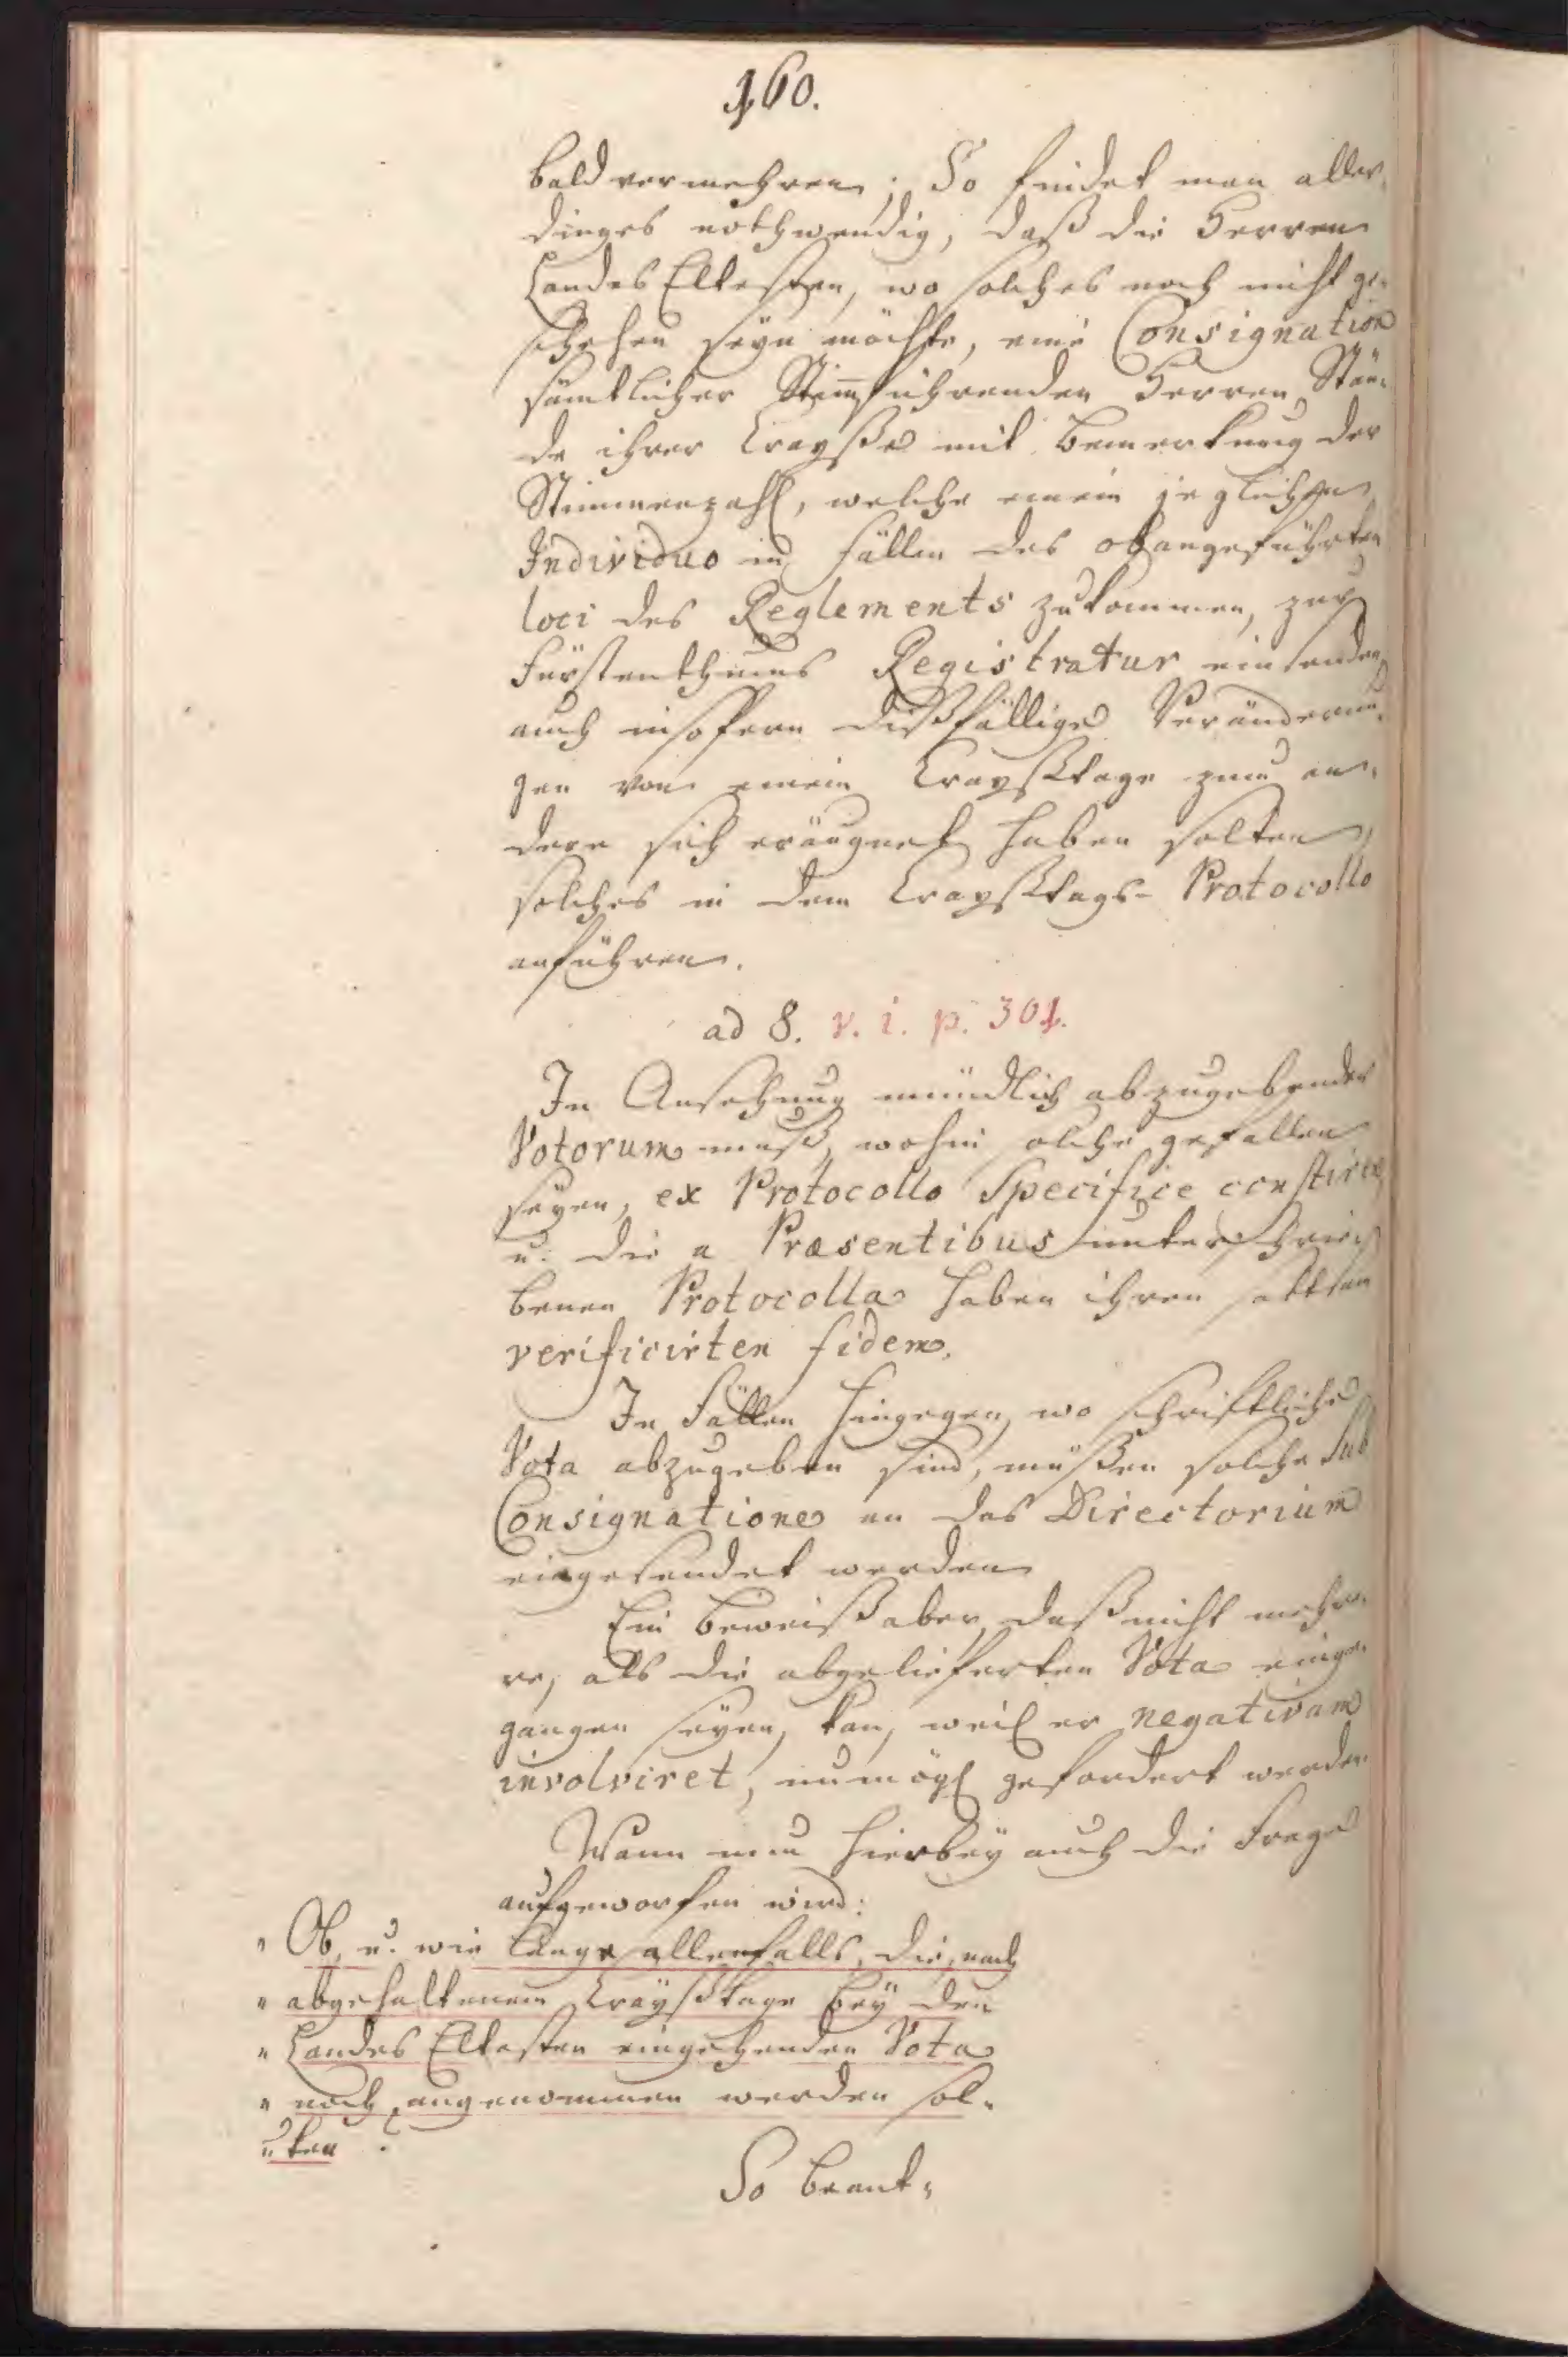 160.
bald vermehren; So findet man aller-
dinges nothwendig, daß die Herren
Landes Eltesten, wo solches noch nicht ge-
schehen seyn möchte, eine Consignation
sämtlicher Stim̄führenden Herren Stän-
de ihrer Crayße mit Bemerkung der
Stimmenzahl, welche einem jeglichen
Individuo in Fällen des obangeführten
loci des Reglements zukommen, zur
Fürstenthums Registratur einsenden,
auch insofern dißfällige Veränderun-
gen von einem Crayßtage zum an-
dern sich eräugnet haben solten,
solches in dem Crayßtags-Protocollo
anführen.
ad 8. v. i. p. 301.
In Ansehung mündlich abzugebender
Votorum muß, wohin solche gefallen
seyen, ex Protocollo Specifice constiren
u. die a Præsentibus unterschrie-
benen Protocolla haben ihren sattsam
verificirten fidem.
In Fällen hingegen, wo schriftliche
Vota abzugeben sind, müßen solche sub
Consignatione an das Directorium
eingesendet werden
Ein Beweiß aber, daß nicht meh-
re, als die abgelieferten Vota einge-
gangen seyen, kan, weil er negativam
involviret, unmögl gefordert werden.
Wann nun hierbey auch die Frage
aufgeworfen wird:
" Ob, u. wie lange allenfalls, die, nach
" abgehaltenem Crayßtage bey den
" Landes Eltesten eingehenden Vota
" noch angenommen werden sol-
" ten ?
So beant-